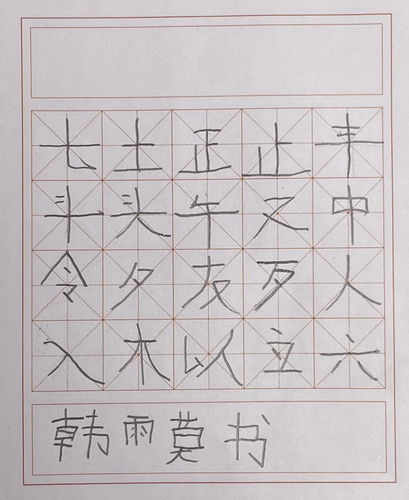 七土正止丰
斗头午又中
令夕友歹人
入木以立六
韩雨莫书